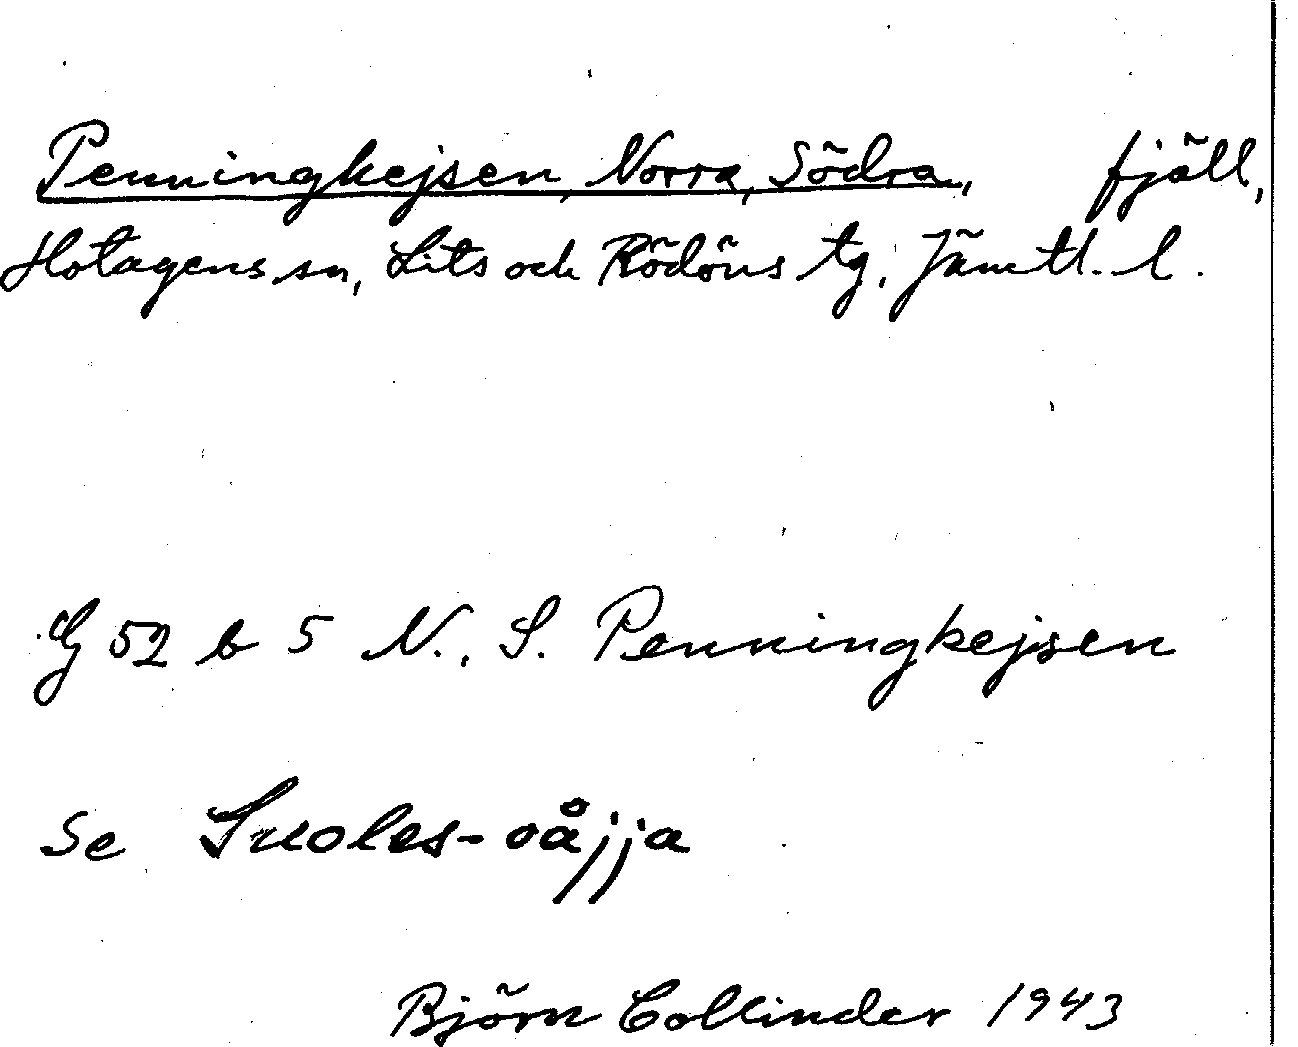 Penningkejsen, Norra, Södra, fjäll,
Hotagens sn, Lits och Rödöns tg, Jämtl. l.
G 52 b 5 N., S. Penningkejsen
Se Suoles-oåjja
Björn Collinder 1943